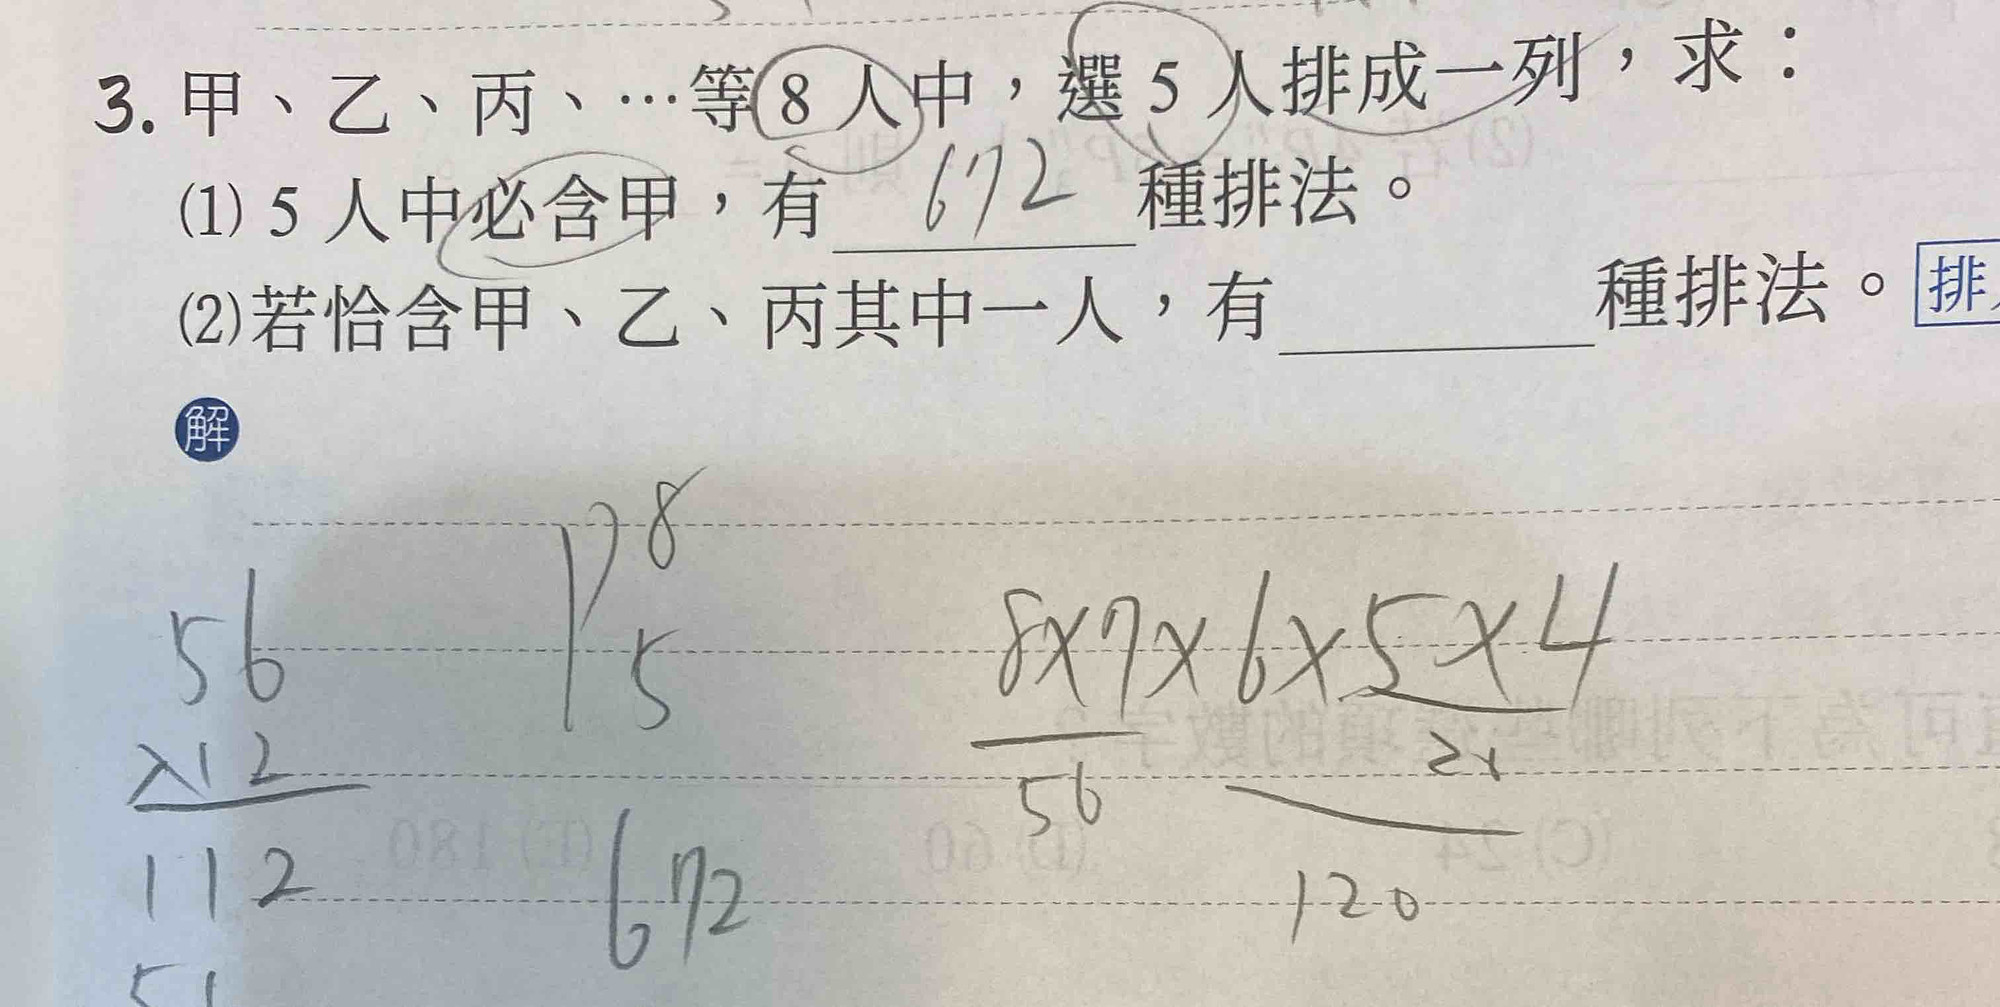 3. 甲、乙、丙、…等 8 人中，選 5 人排成一列，求：
(1) 5 人中必含甲，有 672 種排法。
(2)若恰含甲、乙、丙其中一人，有______種排法。排
解
P 8 5
8×7×6×5×4
56
×12
56
120
112
672